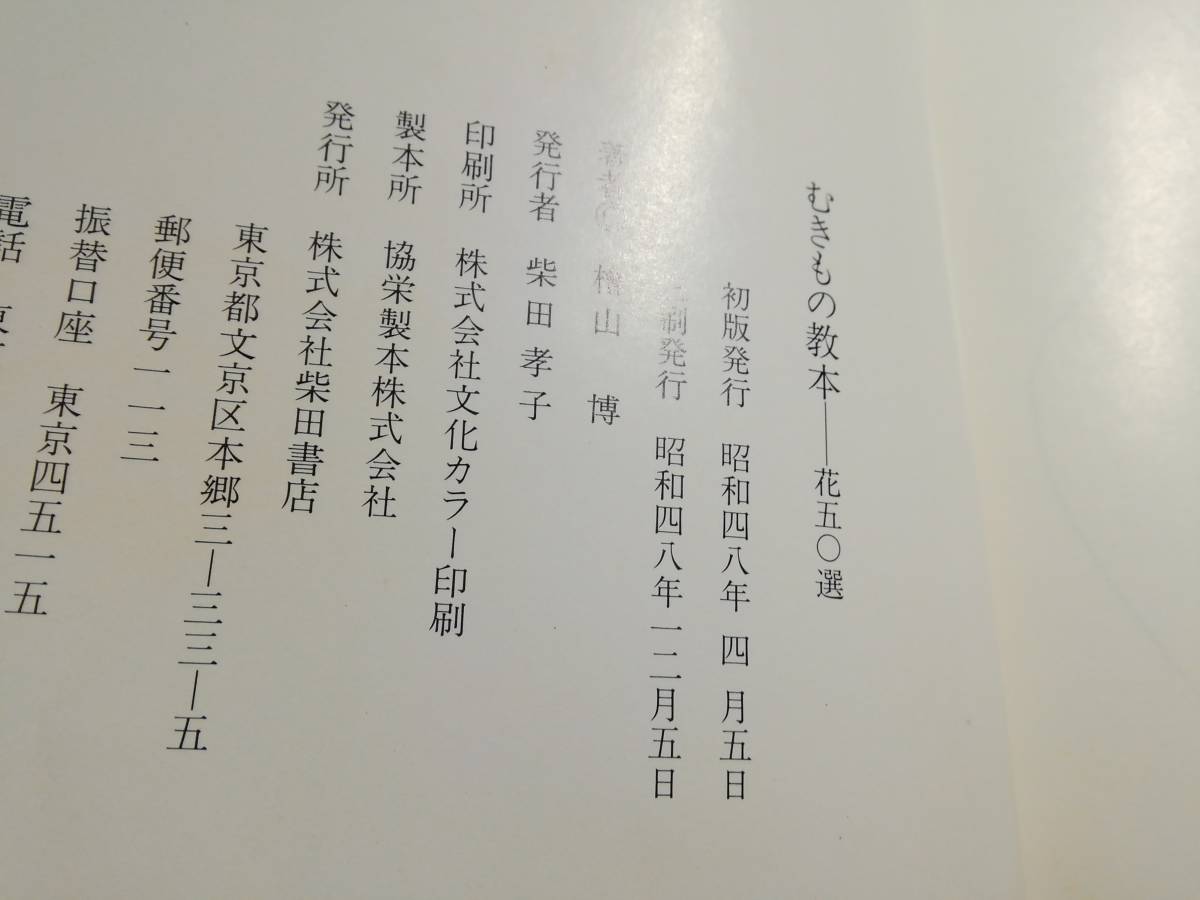 むきもの教本——花五〇選
初版発行 昭和四八年 四 月五日
制発行 昭和四八年一二月五日
著者 檜山 博
発行者 柴田孝子
印刷所 株式会社文化カラー印刷
製本所 協栄製本株式会社
発行所 株式会社柴田書店
東京都文京区本郷三—三三—五
郵便番号一一三
振替口座 東京四五一五
電話